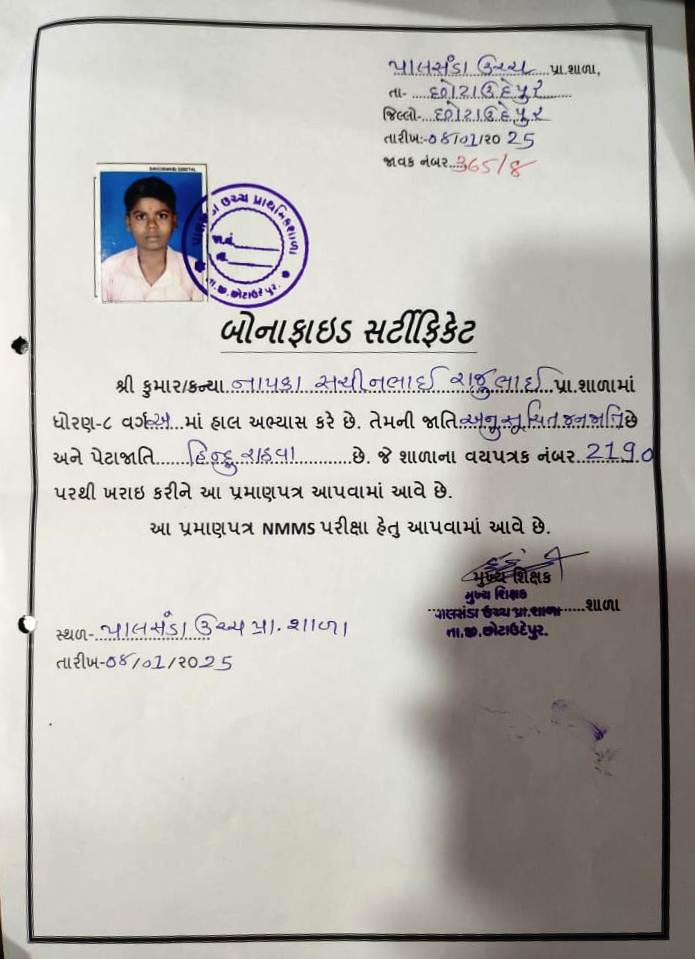 પાલસંડા ઉચ્ચ પ્રા.શાળા,
તા- છોટાઉદેપુર
જિલ્લો- છોટાઉદેપુર
તારીખ:-08/01/૨૦25
જાવક નંબર 365/8
પાલસંડા ઉચ્ચ પ્રાથમિકશાળા
તા.જી.છોટાઉદેપુર.
બોનાફાઇડ સર્ટીફિકેટ
શ્રી કુમાર/કન્યા નાયકા સચીનભાઈ રાજુભાઈ પ્રા.શાળામાં
ધોરણ-૮ વર્ગ અ માં હાલ અભ્યાસ કરે છે. તેમની જાતિ અનુસૂચિત જનજાતિ છે
અને પેટાજાતિ હિન્દુ રાઠવા છે. જે શાળાના વયપત્રક નંબર 2190
પરથી ખરાઇ કરીને આ પ્રમાણપત્ર આપવામાં આવે છે.
આ પ્રમાણપત્ર NMMS પરીક્ષા હેતુ આપવામાં આવે છે.
મુખ્ય શિક્ષક
મુખ્ય શિક્ષક
પાલસંડા ઉચ્ચ પ્રા.શાળા શાળા
તા.જી.છોટાઉદેપુર.
સ્થળ- પાલસંડા ઉચ્ચ પ્રા. શાળા
તારીખ-08/01/૨૦25